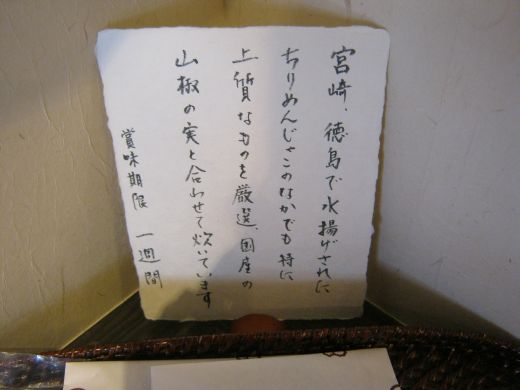 宮崎、徳島で水揚げされた
ちりめんじゃこのなかでも特に
上質なものを厳選、国産の
山椒の実と合わせて炊いています
賞味期限 一週間